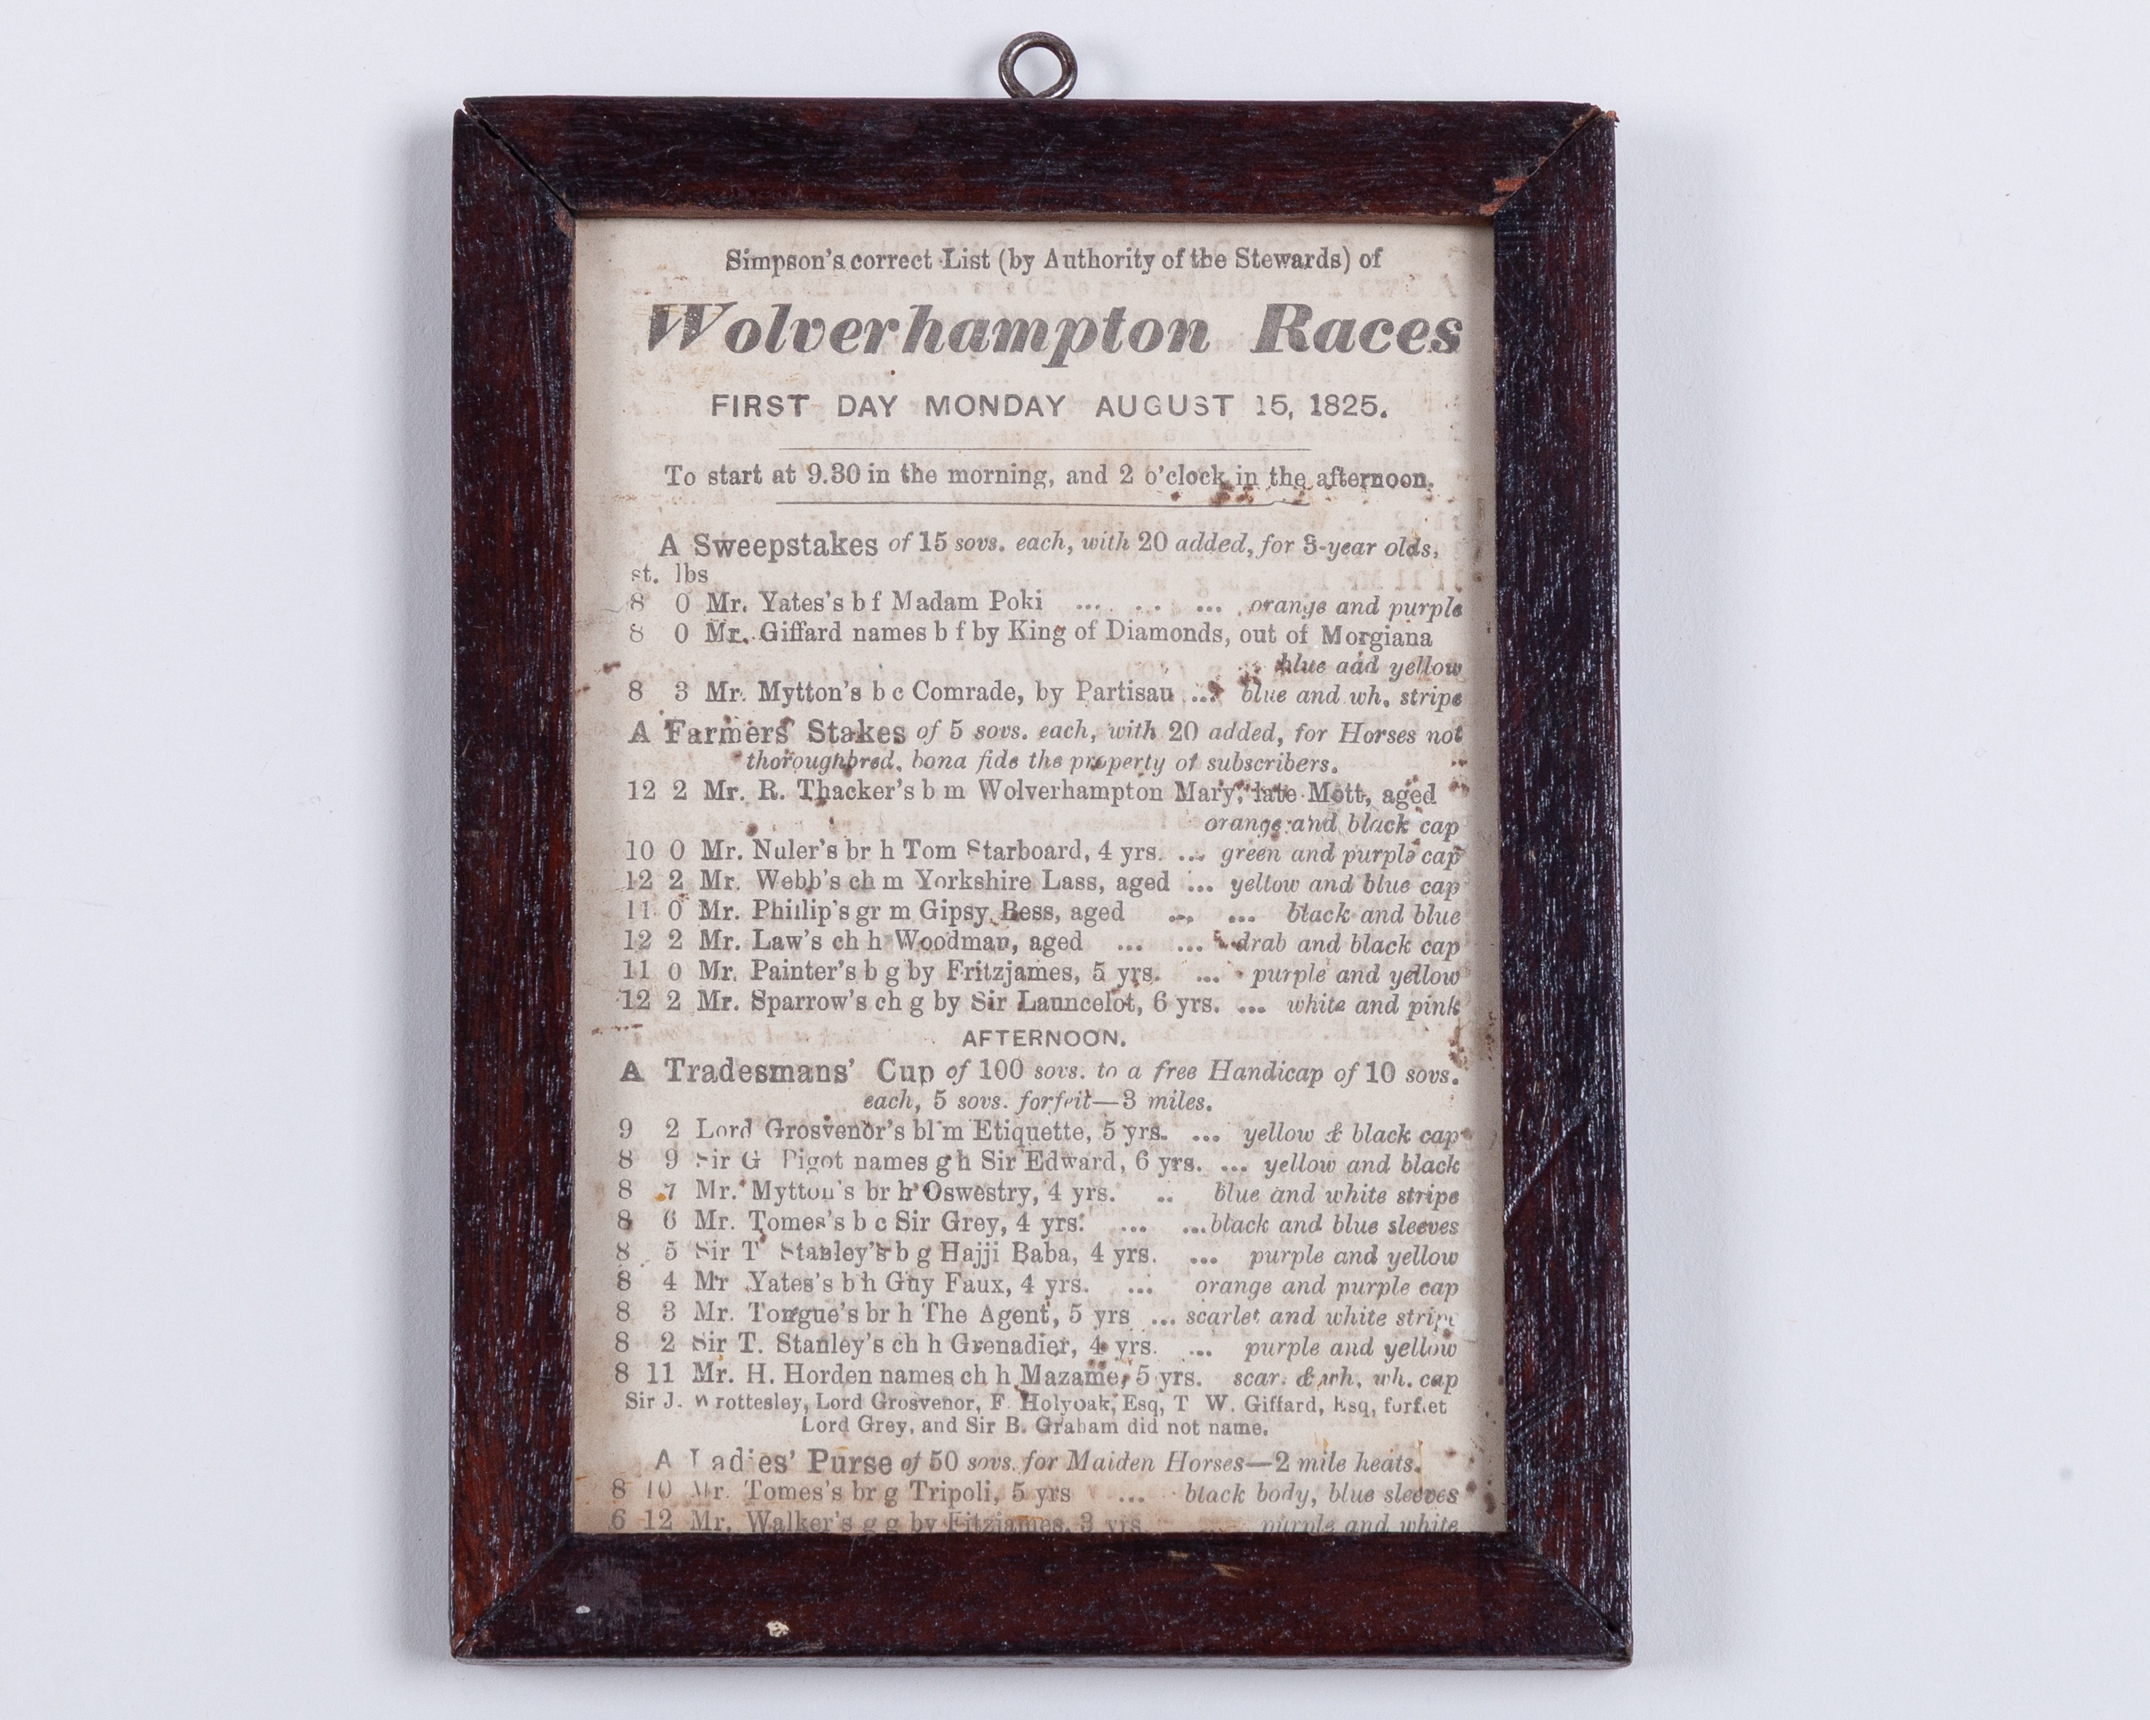 Simpson's correct List (by Authority of the Stewards) of
Wolverhampton Races
FIRST DAY MONDAY AUGUST 15, 1825.
To start at 9.30 in the morning, and 2 o'clock in the afternoon.
A Sweepstakes of 15 sovs. each, with 20 added, for 3-year olds,
st. lbs
8 0 Mr. Yates's b f Madam Poki ... .. ... orange and purple
8 0 Mr. Giffard names b f by King of Diamonds, out of Morgiana
blue aad yellow
8 3 Mr. Mytton's b c Comrade, by Partisau ... blue and wh. stripe
A Farmers' Stakes of 5 sovs. each, with 20 added, for Horses not
thoroughbred, bona fide the property of subscribers.
12 2 Mr. R. Thacker's b m Wolverhampton Mary, late Mott, aged
orange and black cap
10 0 Mr. Nuler's br h Tom Starboard, 4 yrs. ... green and purple cap
12 2 Mr. Webb's ch m Yorkshire Lass, aged ... yellow and blue cap
11 0 Mr. Phillip's gr m Gipsy Bess, aged ... ... black and blue
12 2 Mr. Law's ch h Woodman, aged ... ... drab and black cap
11 0 Mr. Painter's b g by Fritzjames, 5 yrs. ... purple and yellow
12 2 Mr. Sparrow's ch g by Sir Launcelot, 6 yrs. ... white and pink
AFTERNOON.
A Tradesmans' Cup of 100 sovs. to a free Handicap of 10 sovs.
each, 5 sovs. forfeit—3 miles.
9 2 Lord Grosvenor's bl m Etiquette, 5 yrs. ... yellow & black cap
8 9 Sir G Pigot names g h Sir Edward, 6 yrs. ... yellow and black
8 7 Mr. Mytton's br h Oswestry, 4 yrs. .. blue and white stripe
8 6 Mr. Tomes's b c Sir Grey, 4 yrs. ... ...black and blue sleeves
8 5 Sir T Stanley's b g Hajji Baba, 4 yrs. ... purple and yellow
8 4 Mr Yates's b h Guy Faux, 4 yrs. ... orange and purple cap
8 3 Mr. Tongue's br h The Agent, 5 yrs ... scarlet and white stripe
8 2 Sir T. Stanley's ch h Grenadier, 4 yrs. ... purple and yellow
8 11 Mr. H. Horden names ch h Mazame, 5 yrs. scar. & wh, wh. cap
Sir J. Wrottesley, Lord Grosvenor, F. Holyoak, Esq, T W. Giffard, Esq, forfiet
Lord Grey, and Sir B. Graham did not name.
A Ladies' Purse of 50 sovs. for Maiden Horses—2 mile heats.
8 10 Mr. Tomes's br g Tripoli, 5 yrs ... black body, blue sleeves
6 12 Mr. Walker's g g by Fitzjames, 3 yrs. purple and white